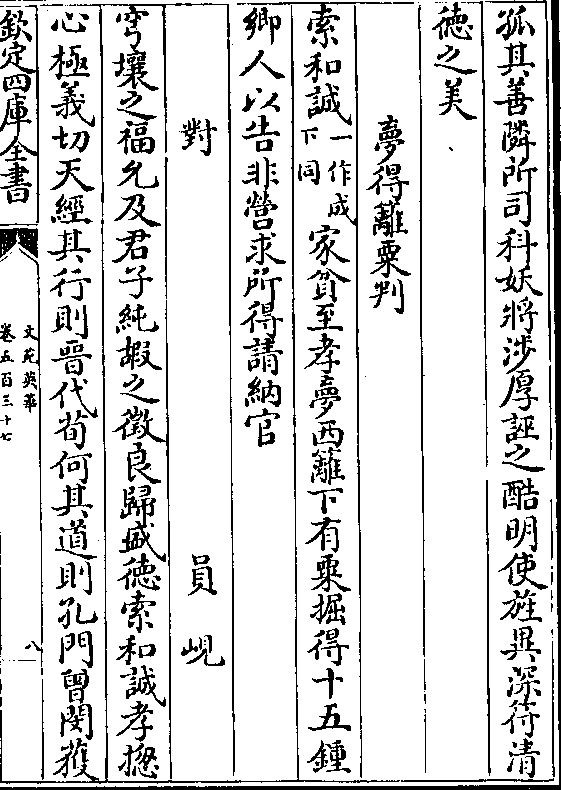 孤其善隣所司科妖將渉厚誣之酷明使旌異深符清
徳之美
夢得籬粟判
索和誠一作成下同家貧至孝夢西籬下有粟掘得十五鍾
鄉人以告非營求所得請納官
對
員峴
穹壤之福允及君子純嘏之徵良歸盛徳索和誠孝摠
心極義切天經其行則晉代荀何其道則孔門曾閔獲
欽定四庫全書
文苑英華
卷五百三十七
八